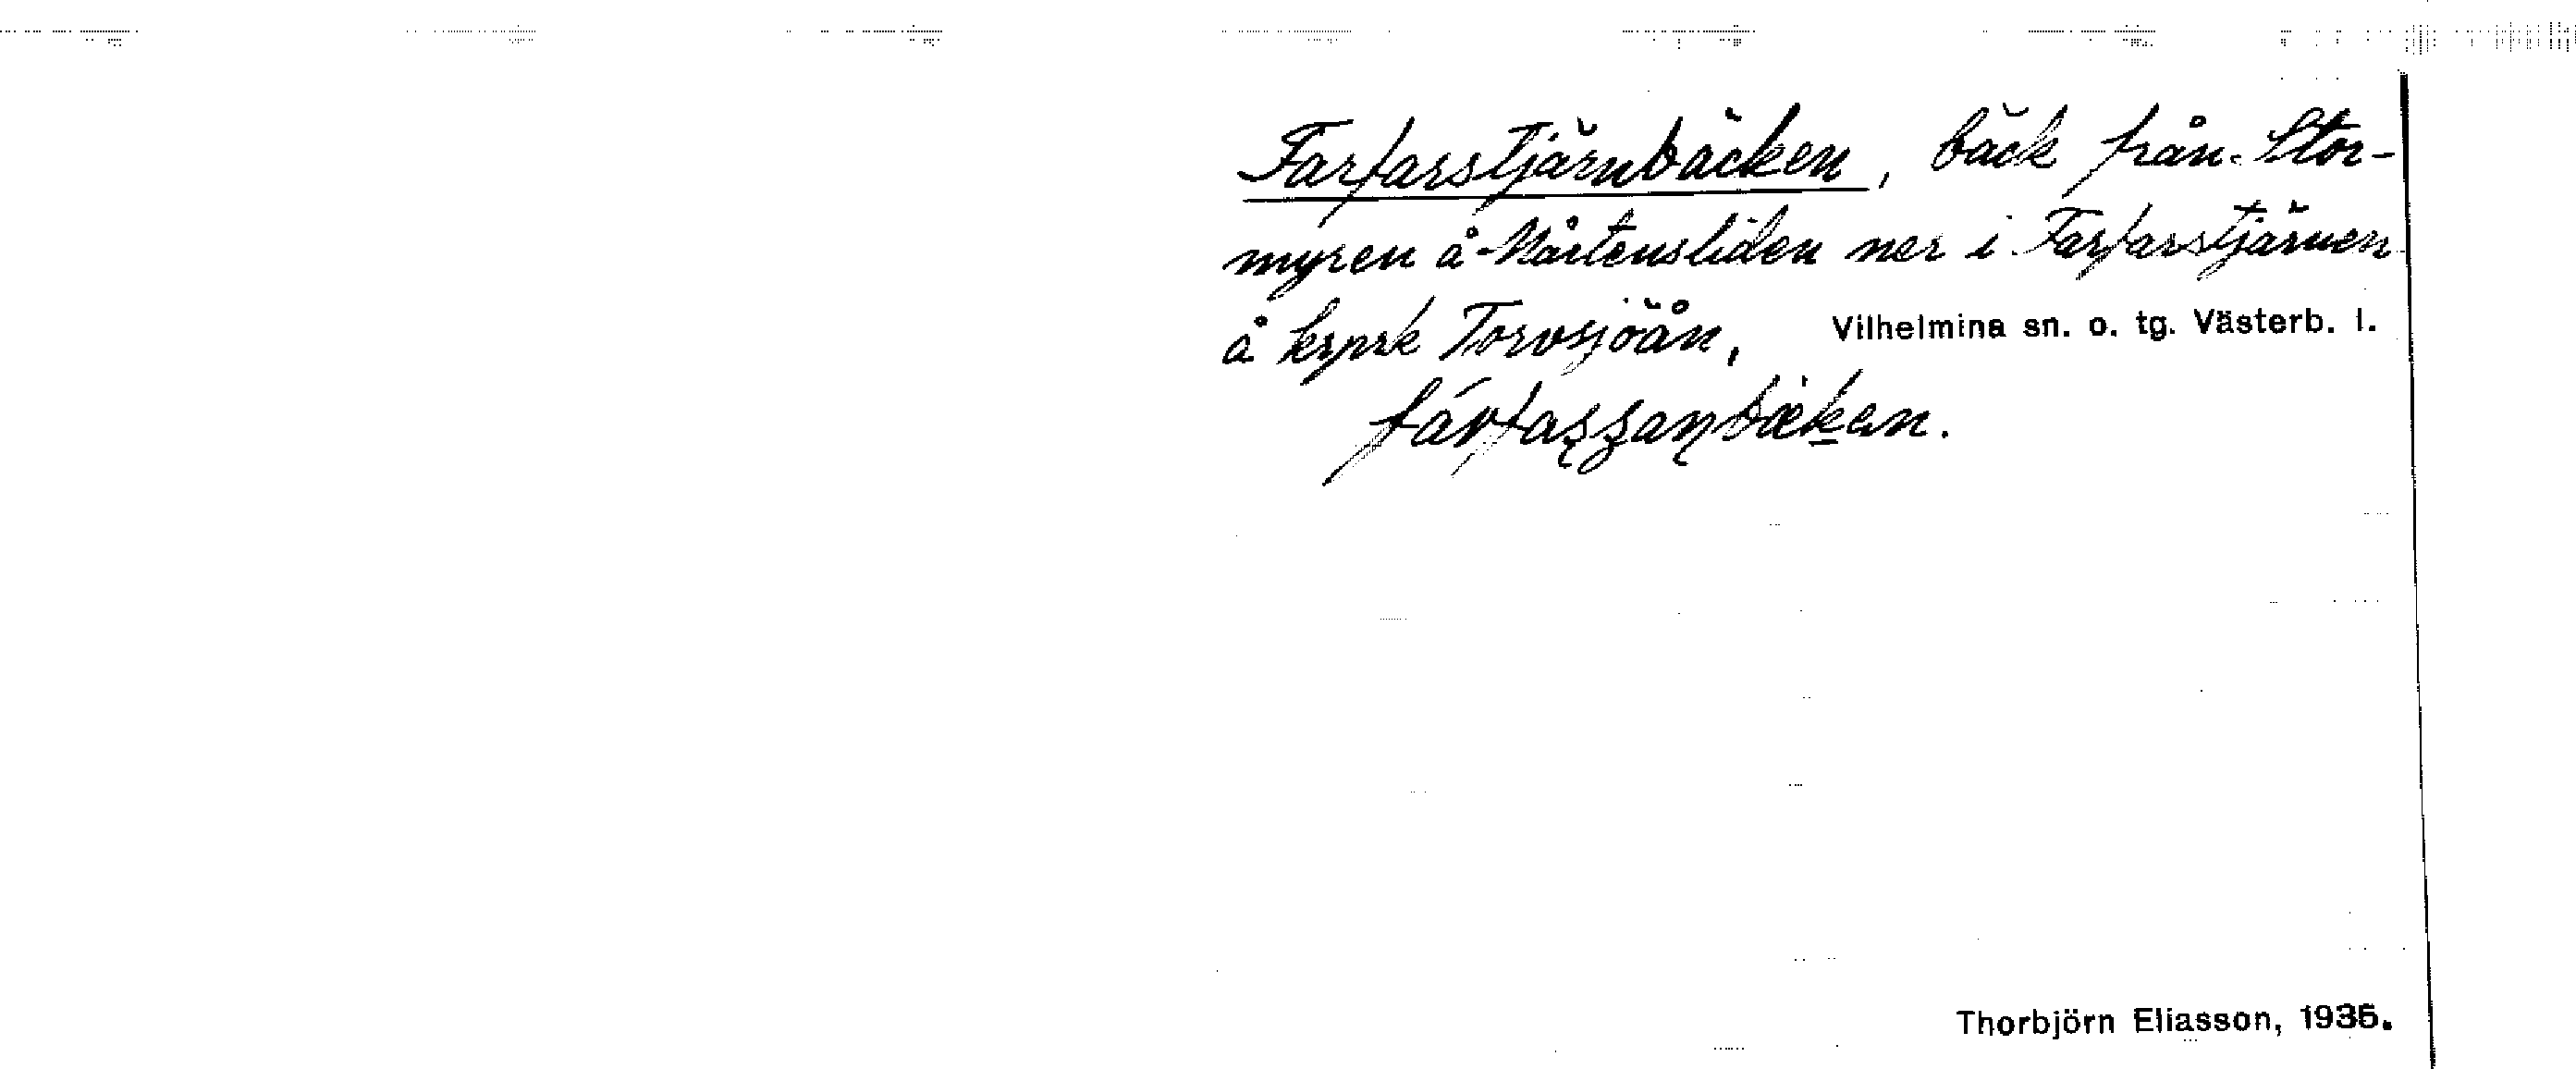 Farfarstjärnbäcken, bäck från Stor-
myren å Mårtensliden ner i Farfarstjärnen
å krprk Torvsjöån, Vilhelmina sn. o. tg. Västerb. l.
Thorbjörn Eliasson, 1935.